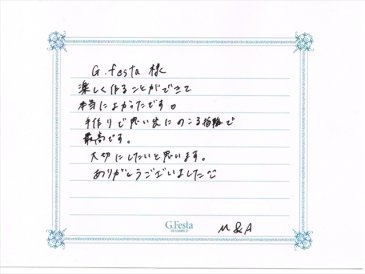 G.festa 様
楽しく作ることができて
本当によかったです。
手作りで思い出にのこる指輪で
最高です。
大切にしたいと思います。
ありがとうございました
G.Festa
M & A